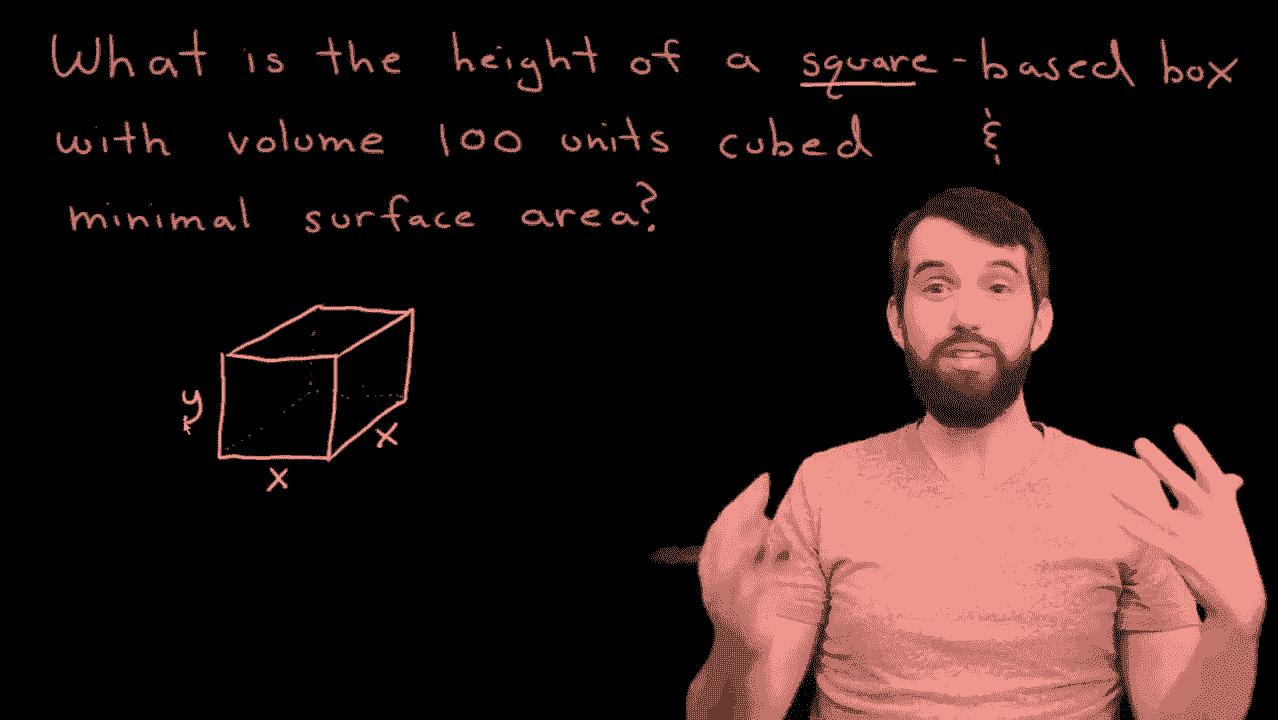 What is the height of a square-based box
with volume 100 units cubed &
minimal surface area?
y
x
x